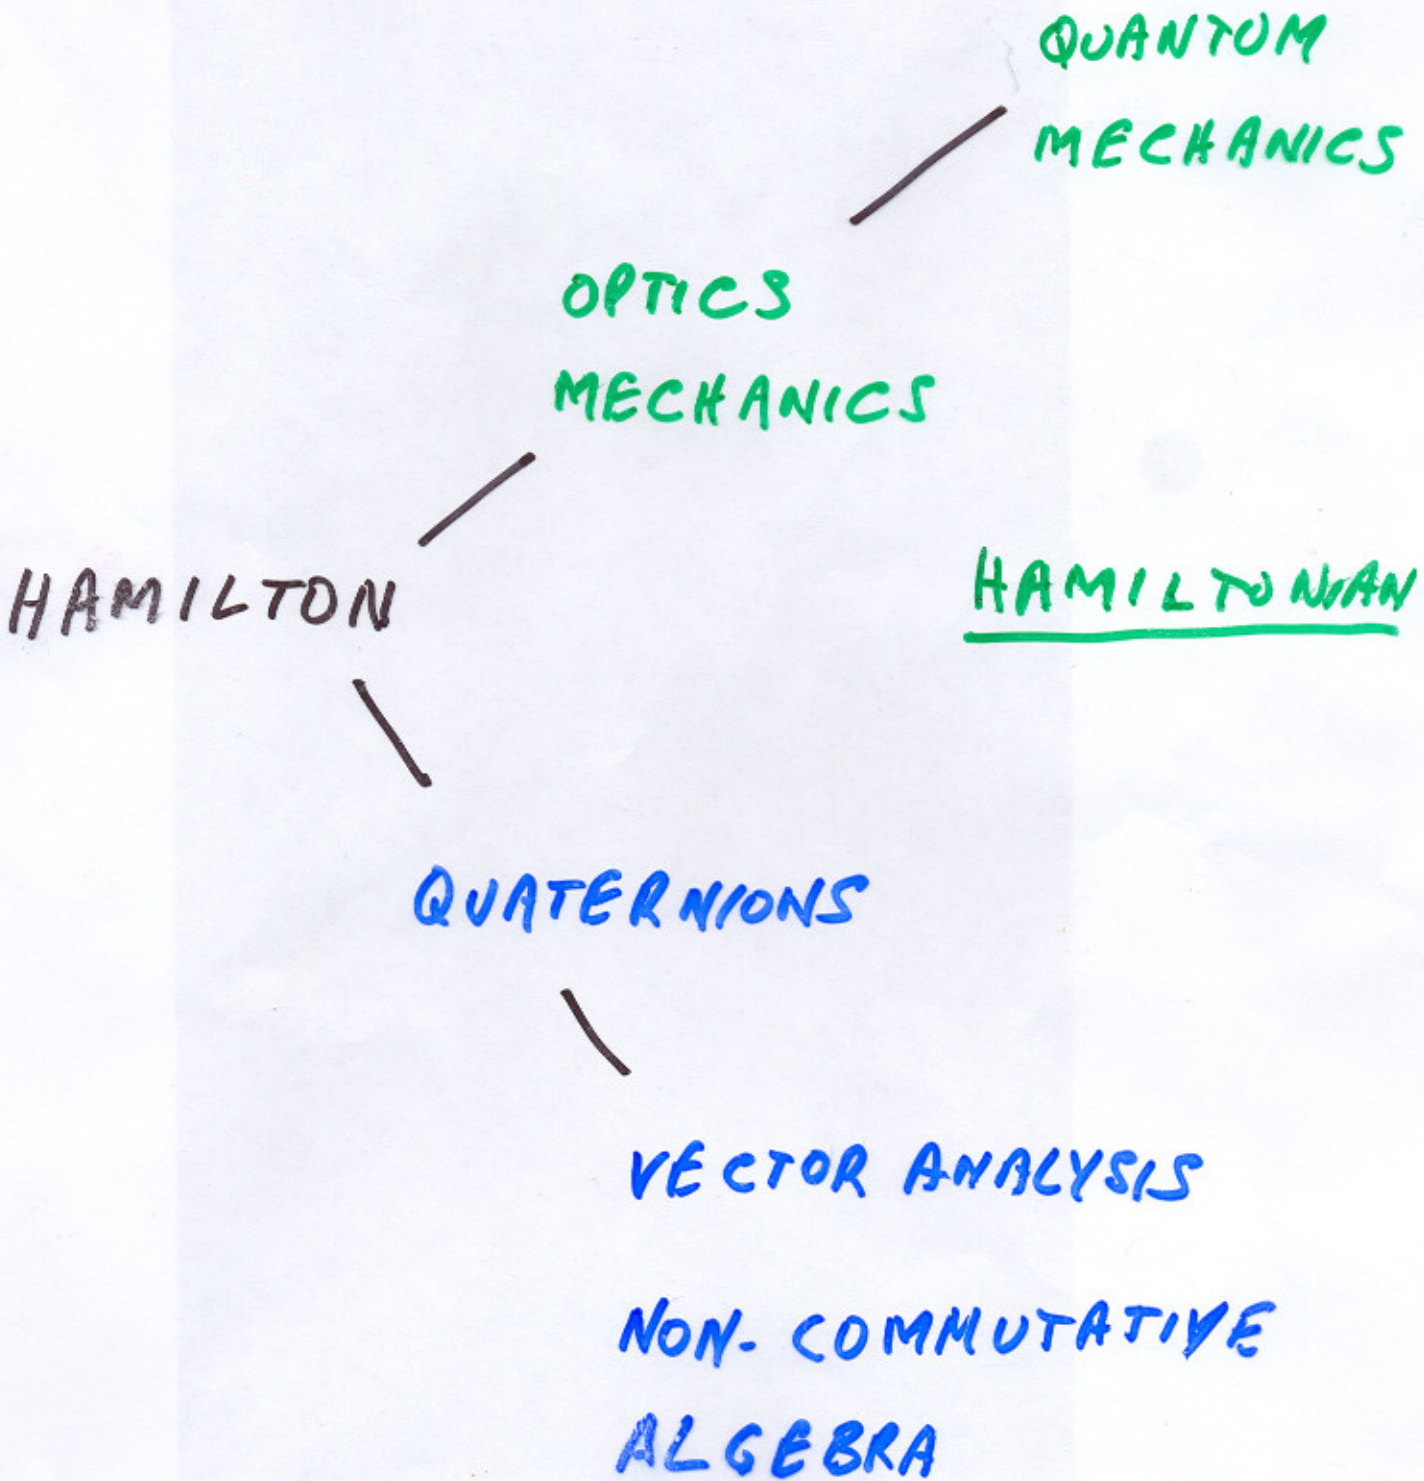 QUANTUM
MECHANICS
OPTICS
MECHANICS
HAMILTON
HAMILTONIAN
QUATERNIONS
VECTOR ANALYSIS
NON-COMMUTATIVE
ALGEBRA